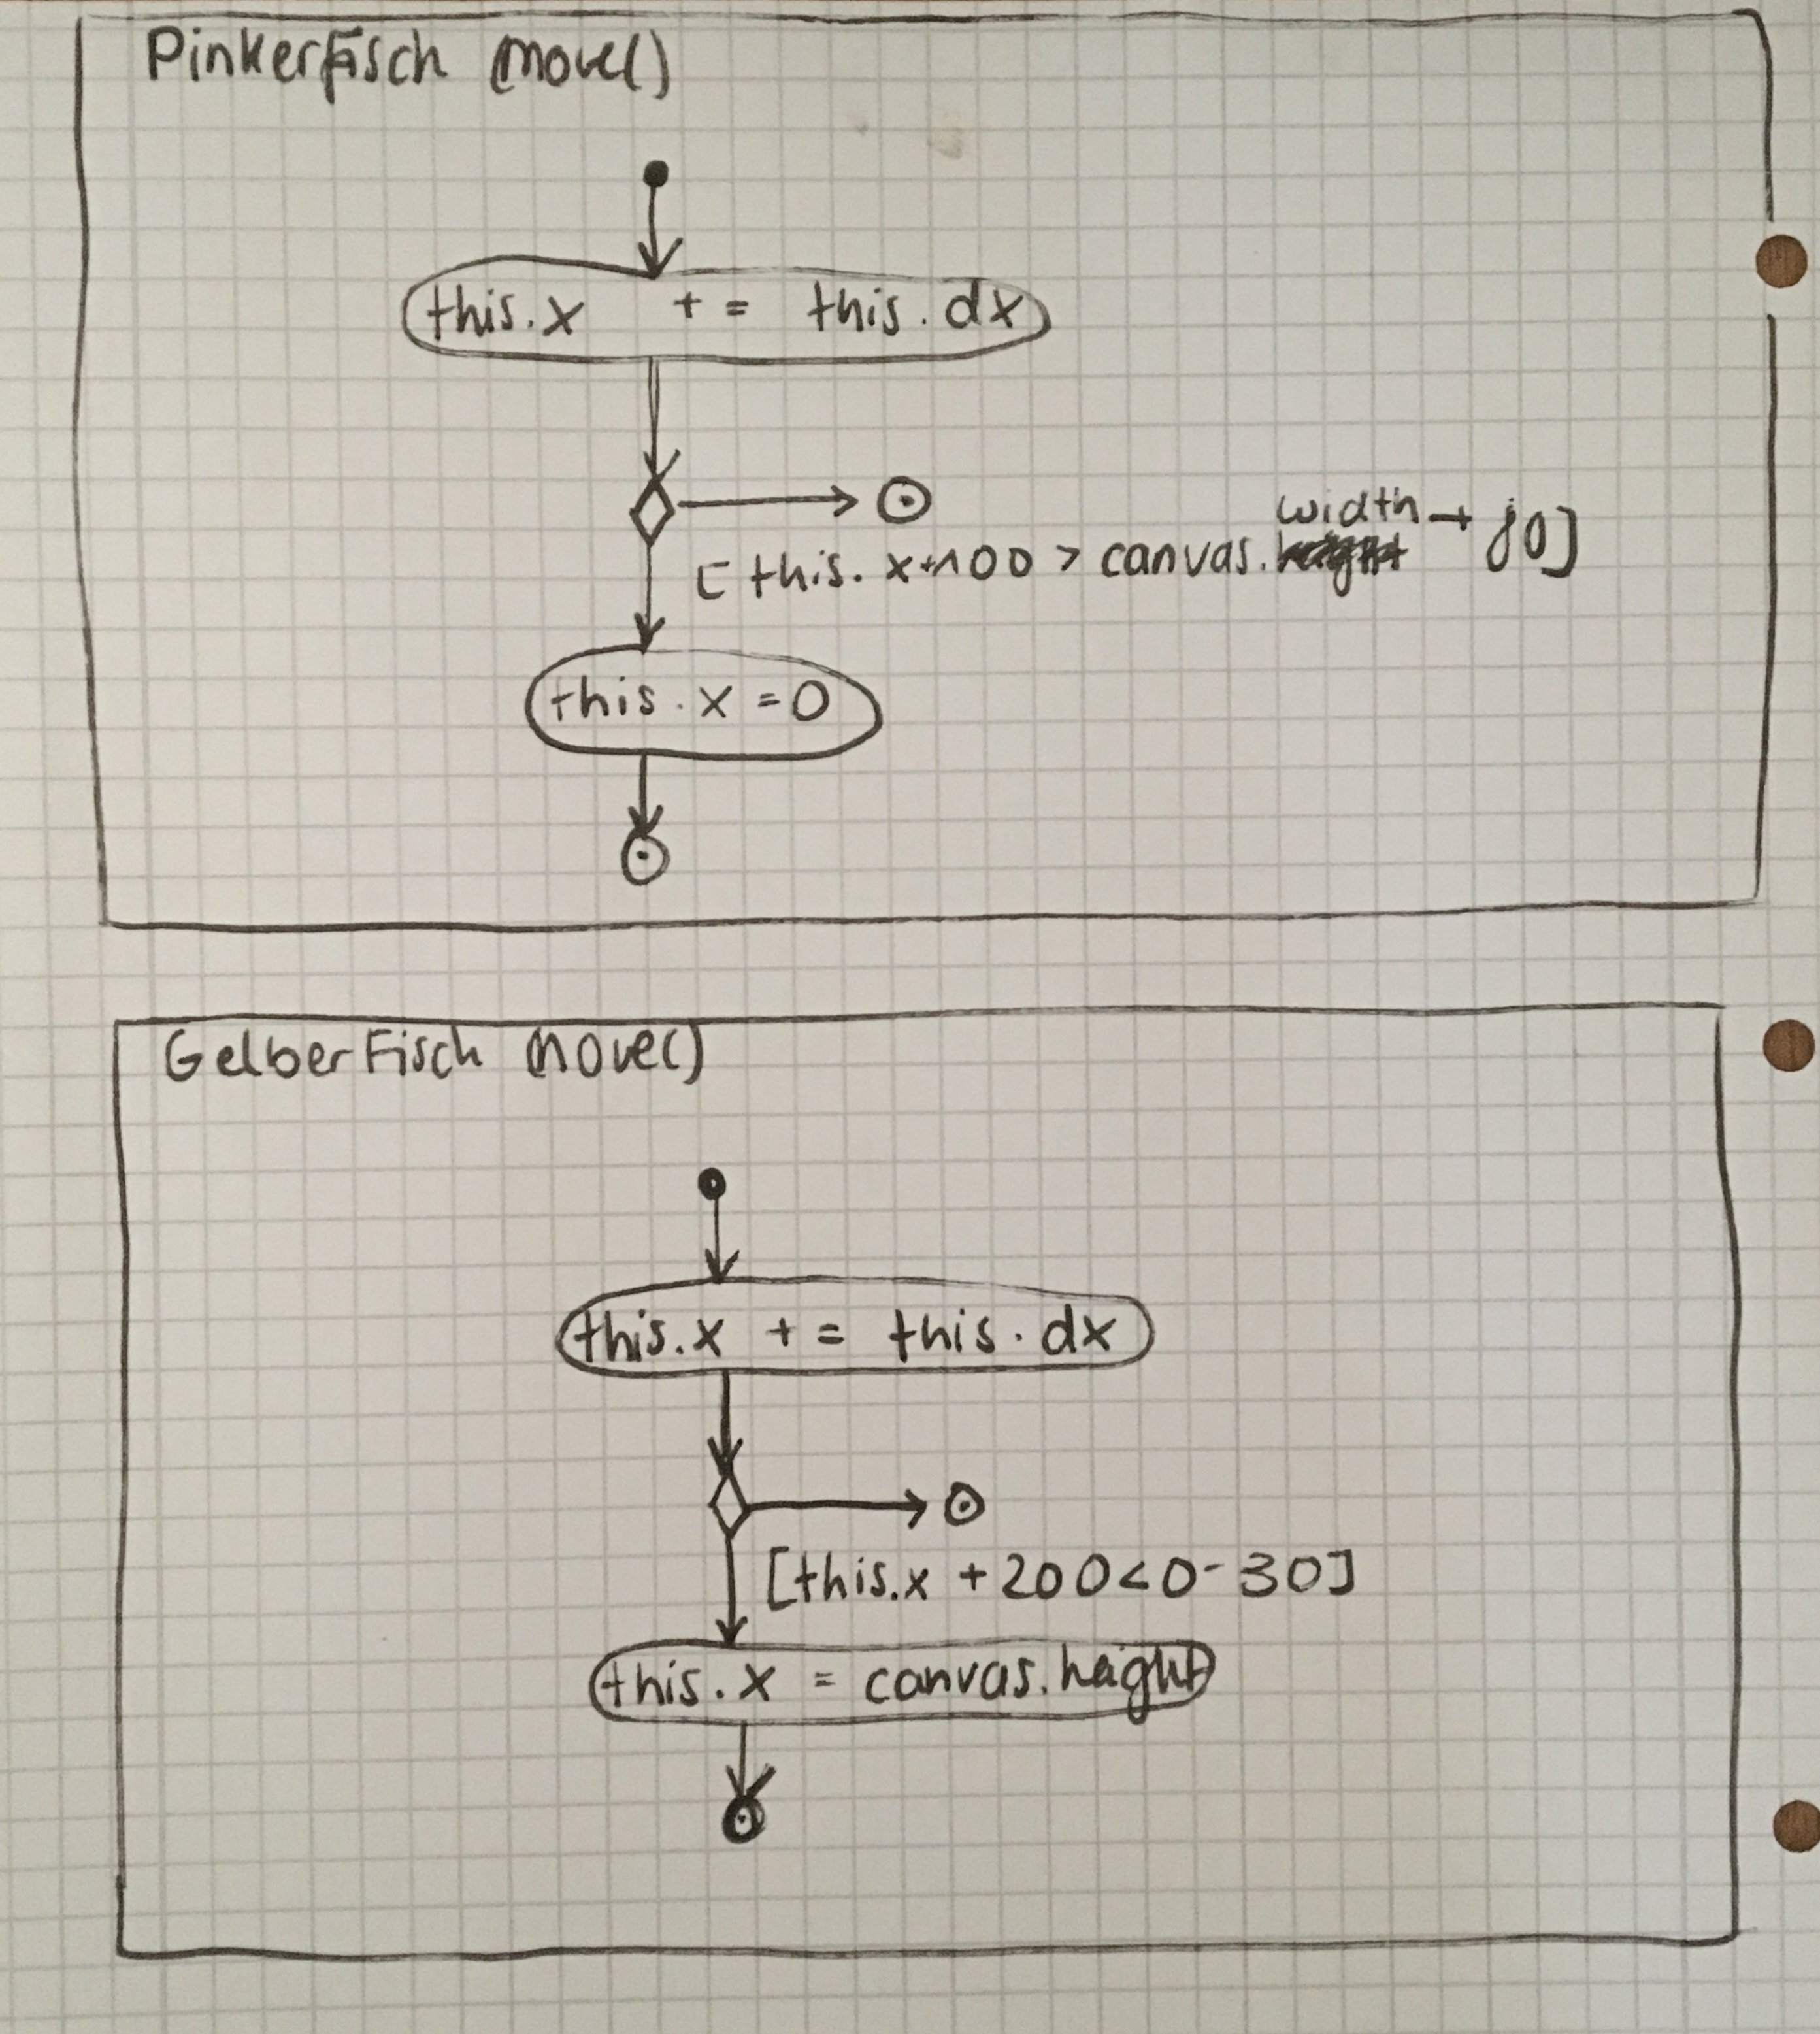 PinkerFisch move()
this.x += this.dx
width +
[this.x+100 > canvas.
this.x=0
GelberFisch move()
this.x += this.dx
[this.x +200<0-30]
this.x = canvas.heigh